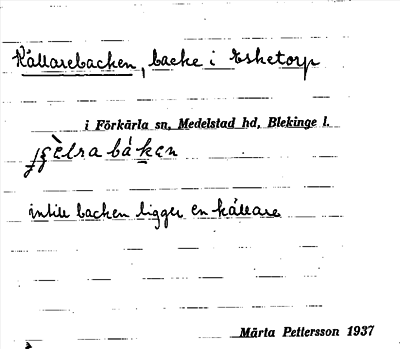 Källarebacken, backe i Eketorp
i Förkärla sn, Medelstad hd, Blekinge l.
intill backen ligger en källare
Märta Pettersson 1937